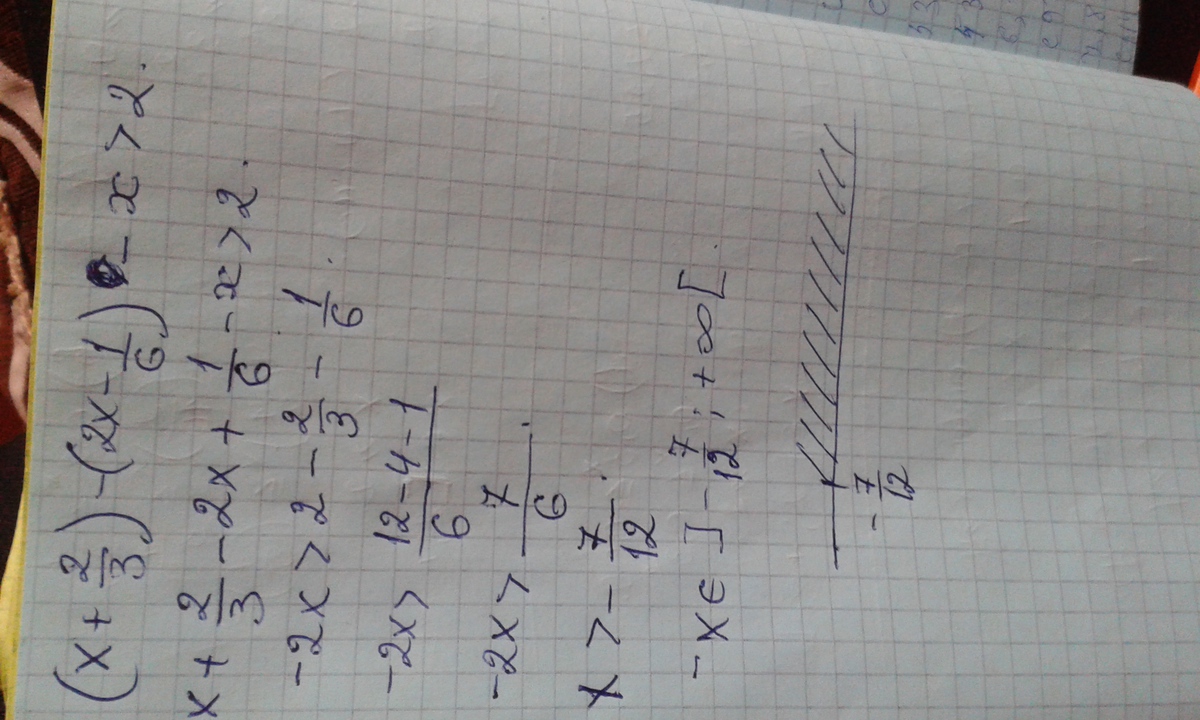 (x + 2/3) - (2x - 1/6) - x > 2.
x + 2/3 - 2x + 1/6 - x > 2.
-2x > 2 - 2/3 - 1/6.
-2x > (12 - 4 - 1)/6
-2x > 7/6.
x > - 7/12.
-x ∈ ]- 7/12; +∞[.
- 7/12